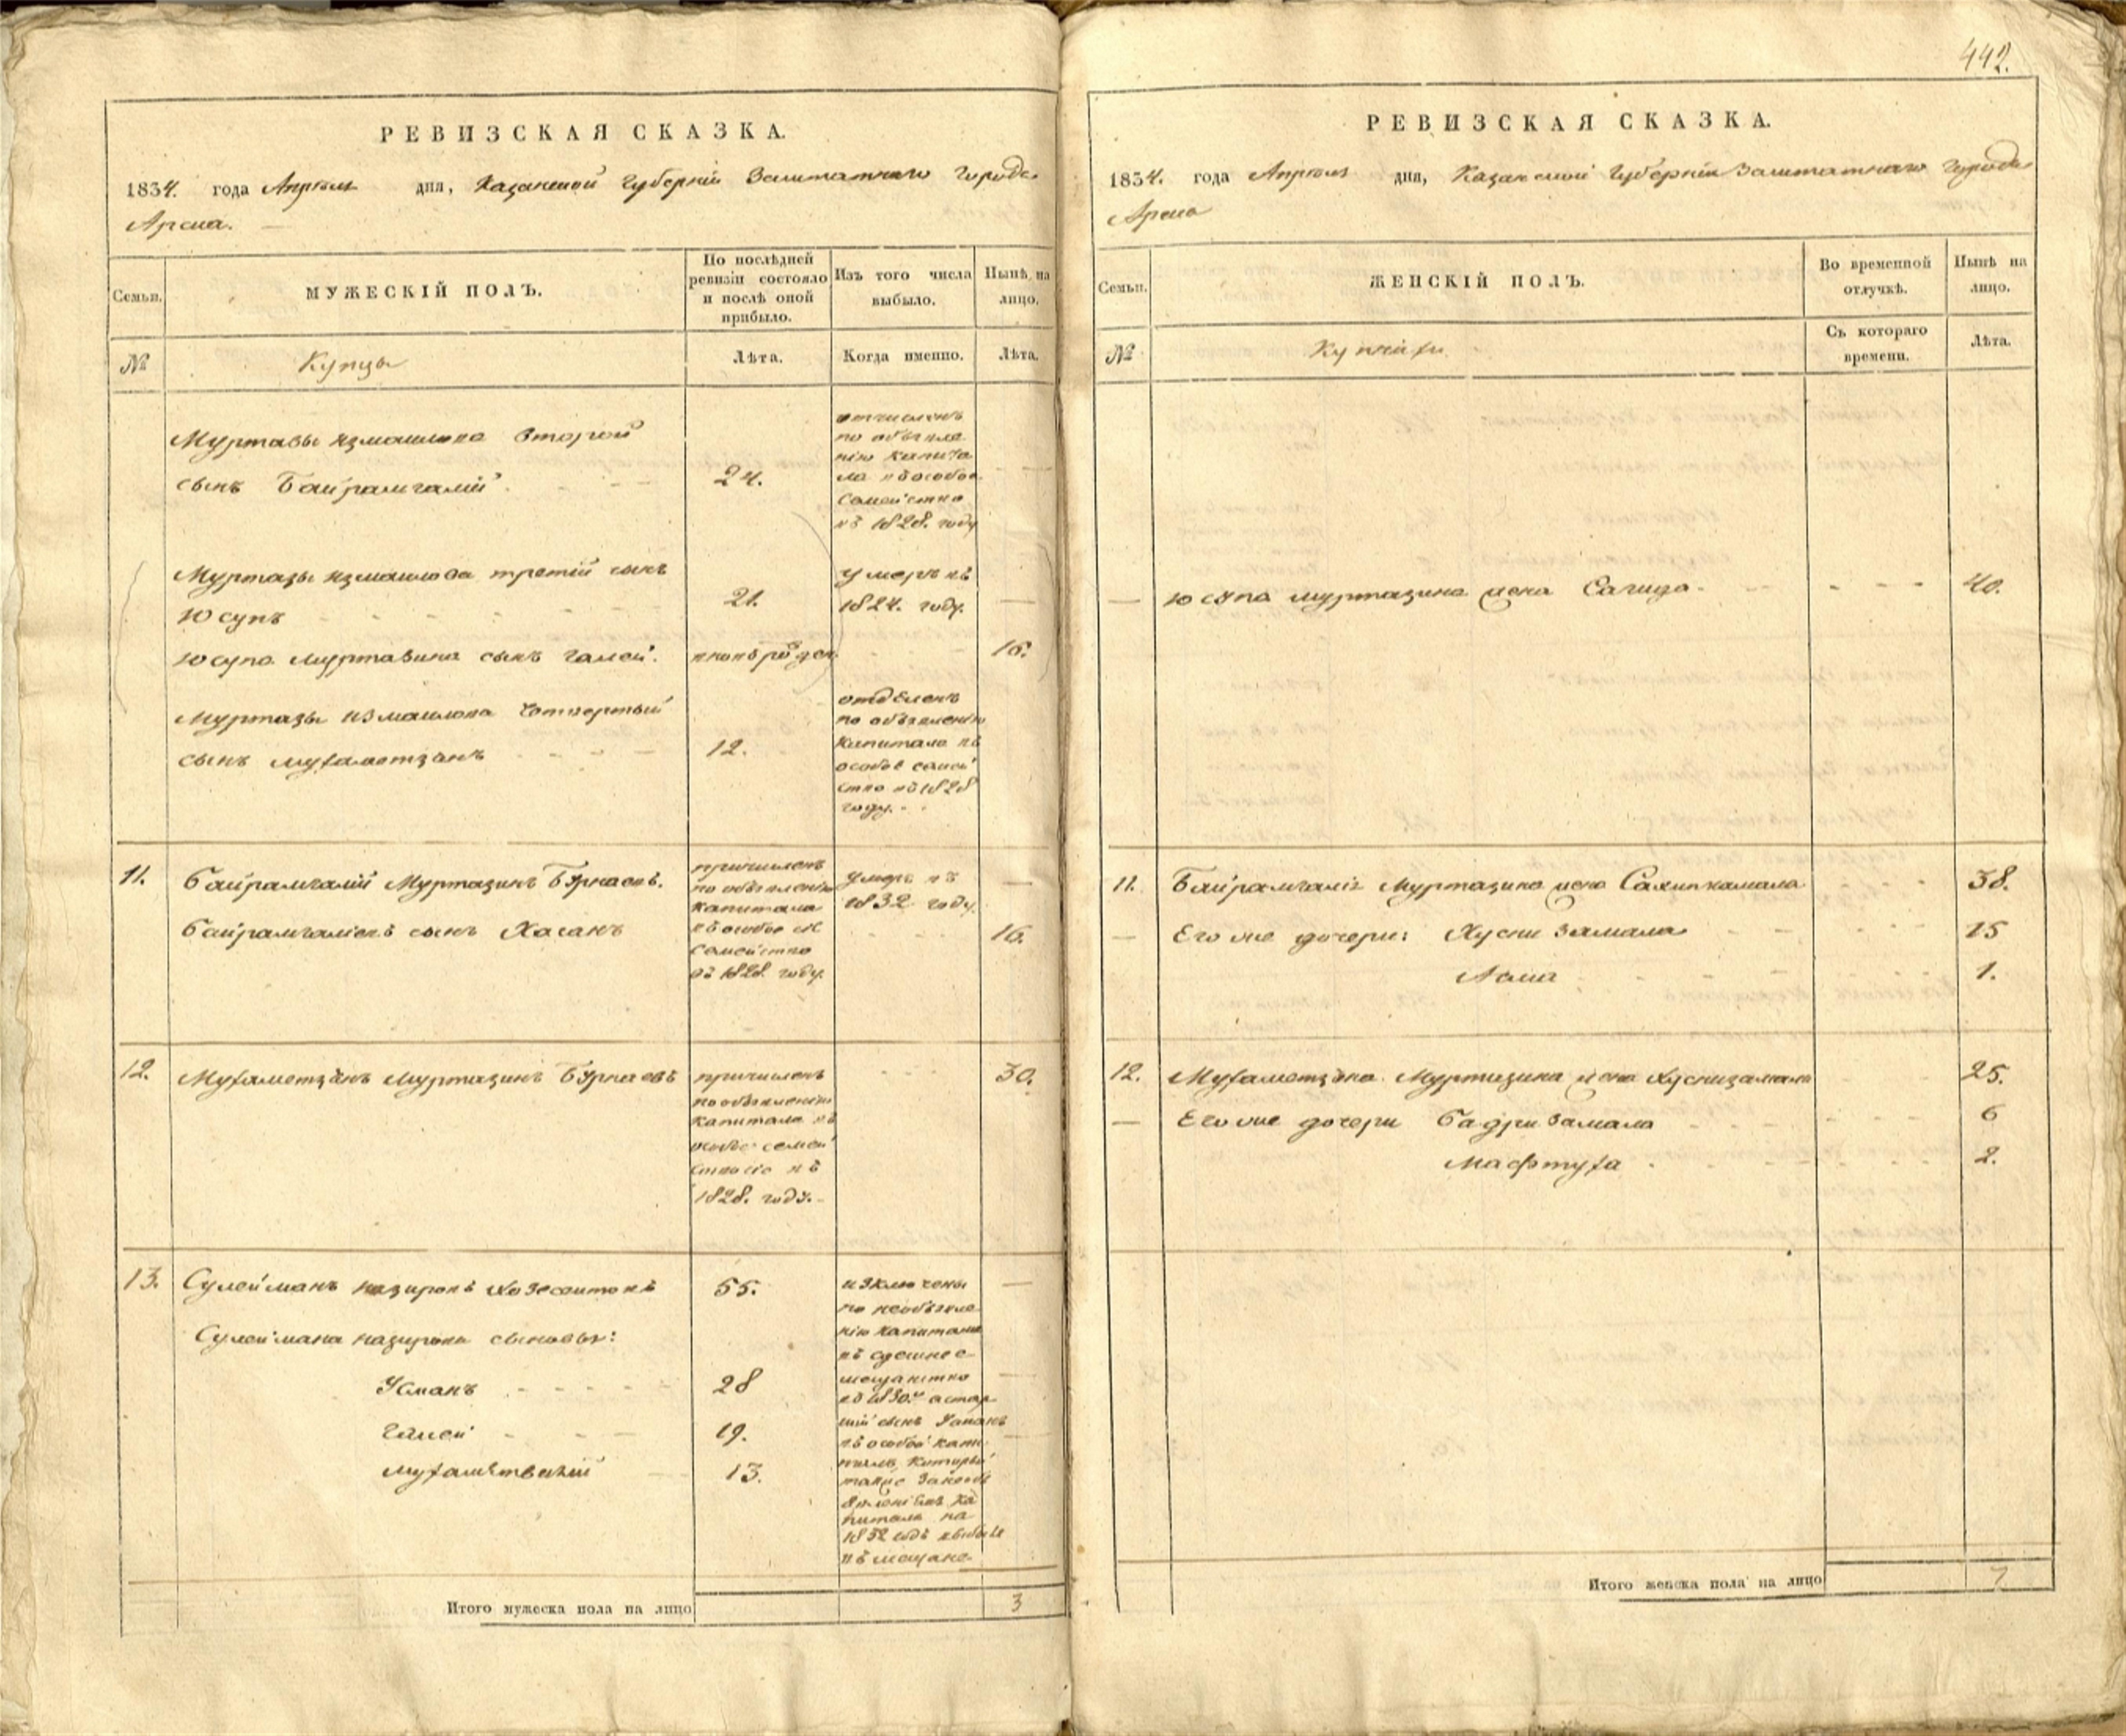 442.
РЕВИЗСКАЯ СКАЗКА.
1834. года Апреля дня, Казанской Губернiи Заштатнаго Города
Арска.
Семьи.
МУЖЕСКIЙ ПОЛЪ.
По послѣдней
ревизiи состояло
и послѣ оной
прибыло.
Изъ того числа
выбыло.
Нынѣ на
лицо.
№
Купцы
Лѣта.
Когда именно.
Лѣта.
Муртазы Измаилова второй
сынъ Байрамгалiй
24.
отчисленъ
по объявле
нiю капита
ла въ особое
Семейство
въ 1828. году
Муртазы Измаилова третiй сынъ
Юсупъ
21.
умеръ въ
1824. году.
Юсупа Муртазина сынъ Галей.
вновьрожден.
16.
Муртазы Измаилова четвертый
сынъ Мухаметзянъ
12.
отделенъ
по объявленiю
капитала въ
особое семей
ство въ 1828
году.
11.
Байрамгалiй Муртазинъ Бурнаевъ.
Байрамгалiевъ сынъ Хасанъ
причисленъ
по объявленiю
капитала
въ особое
семейство
въ 1828. году.
умеръ въ
1832 году.
16.
12.
Мухаметзянъ Муртазинъ Бурнаевъ
причисленъ
по объявленiю
капитала въ
особое семей
въ
1828. году.
30.
13.
Сулейманъ Назировъ
55.
Сулеймана Назирова сыновья:
Усманъ
28
Галей
19.
13.
изключены
по необъявле
нiю капитала
въ здешнее
мещанство
въ 1830 а стар
шiй сынъ Усманъ
въ особой капи
который
также
капитала на
1832
въ мещане
Итого мужеска пола на лицо
3
РЕВИЗСКАЯ СКАЗКА.
1834. года Апреля дня, Казанской Губернiи Заштатнаго Города
Арска
Семьи.
ЖЕНСКIЙ ПОЛЪ.
Во временной
отлучкѣ.
Нынѣ на
лицо.
№
Съ котораго
времени.
Лѣта.
Юсупа Муртазина жена Сагида.
40.
11.
Байрамгалiя Муртазина жена Сахипкамала
38.
Его же дочери: Хусни Замала
15
Асма
1.
12.
Мухаметзяна Муртазина жена Хуснизамала
25.
Его же дочери Бадри Замала
6
Мафтуха
2.
Итого женска пола на лицо
7